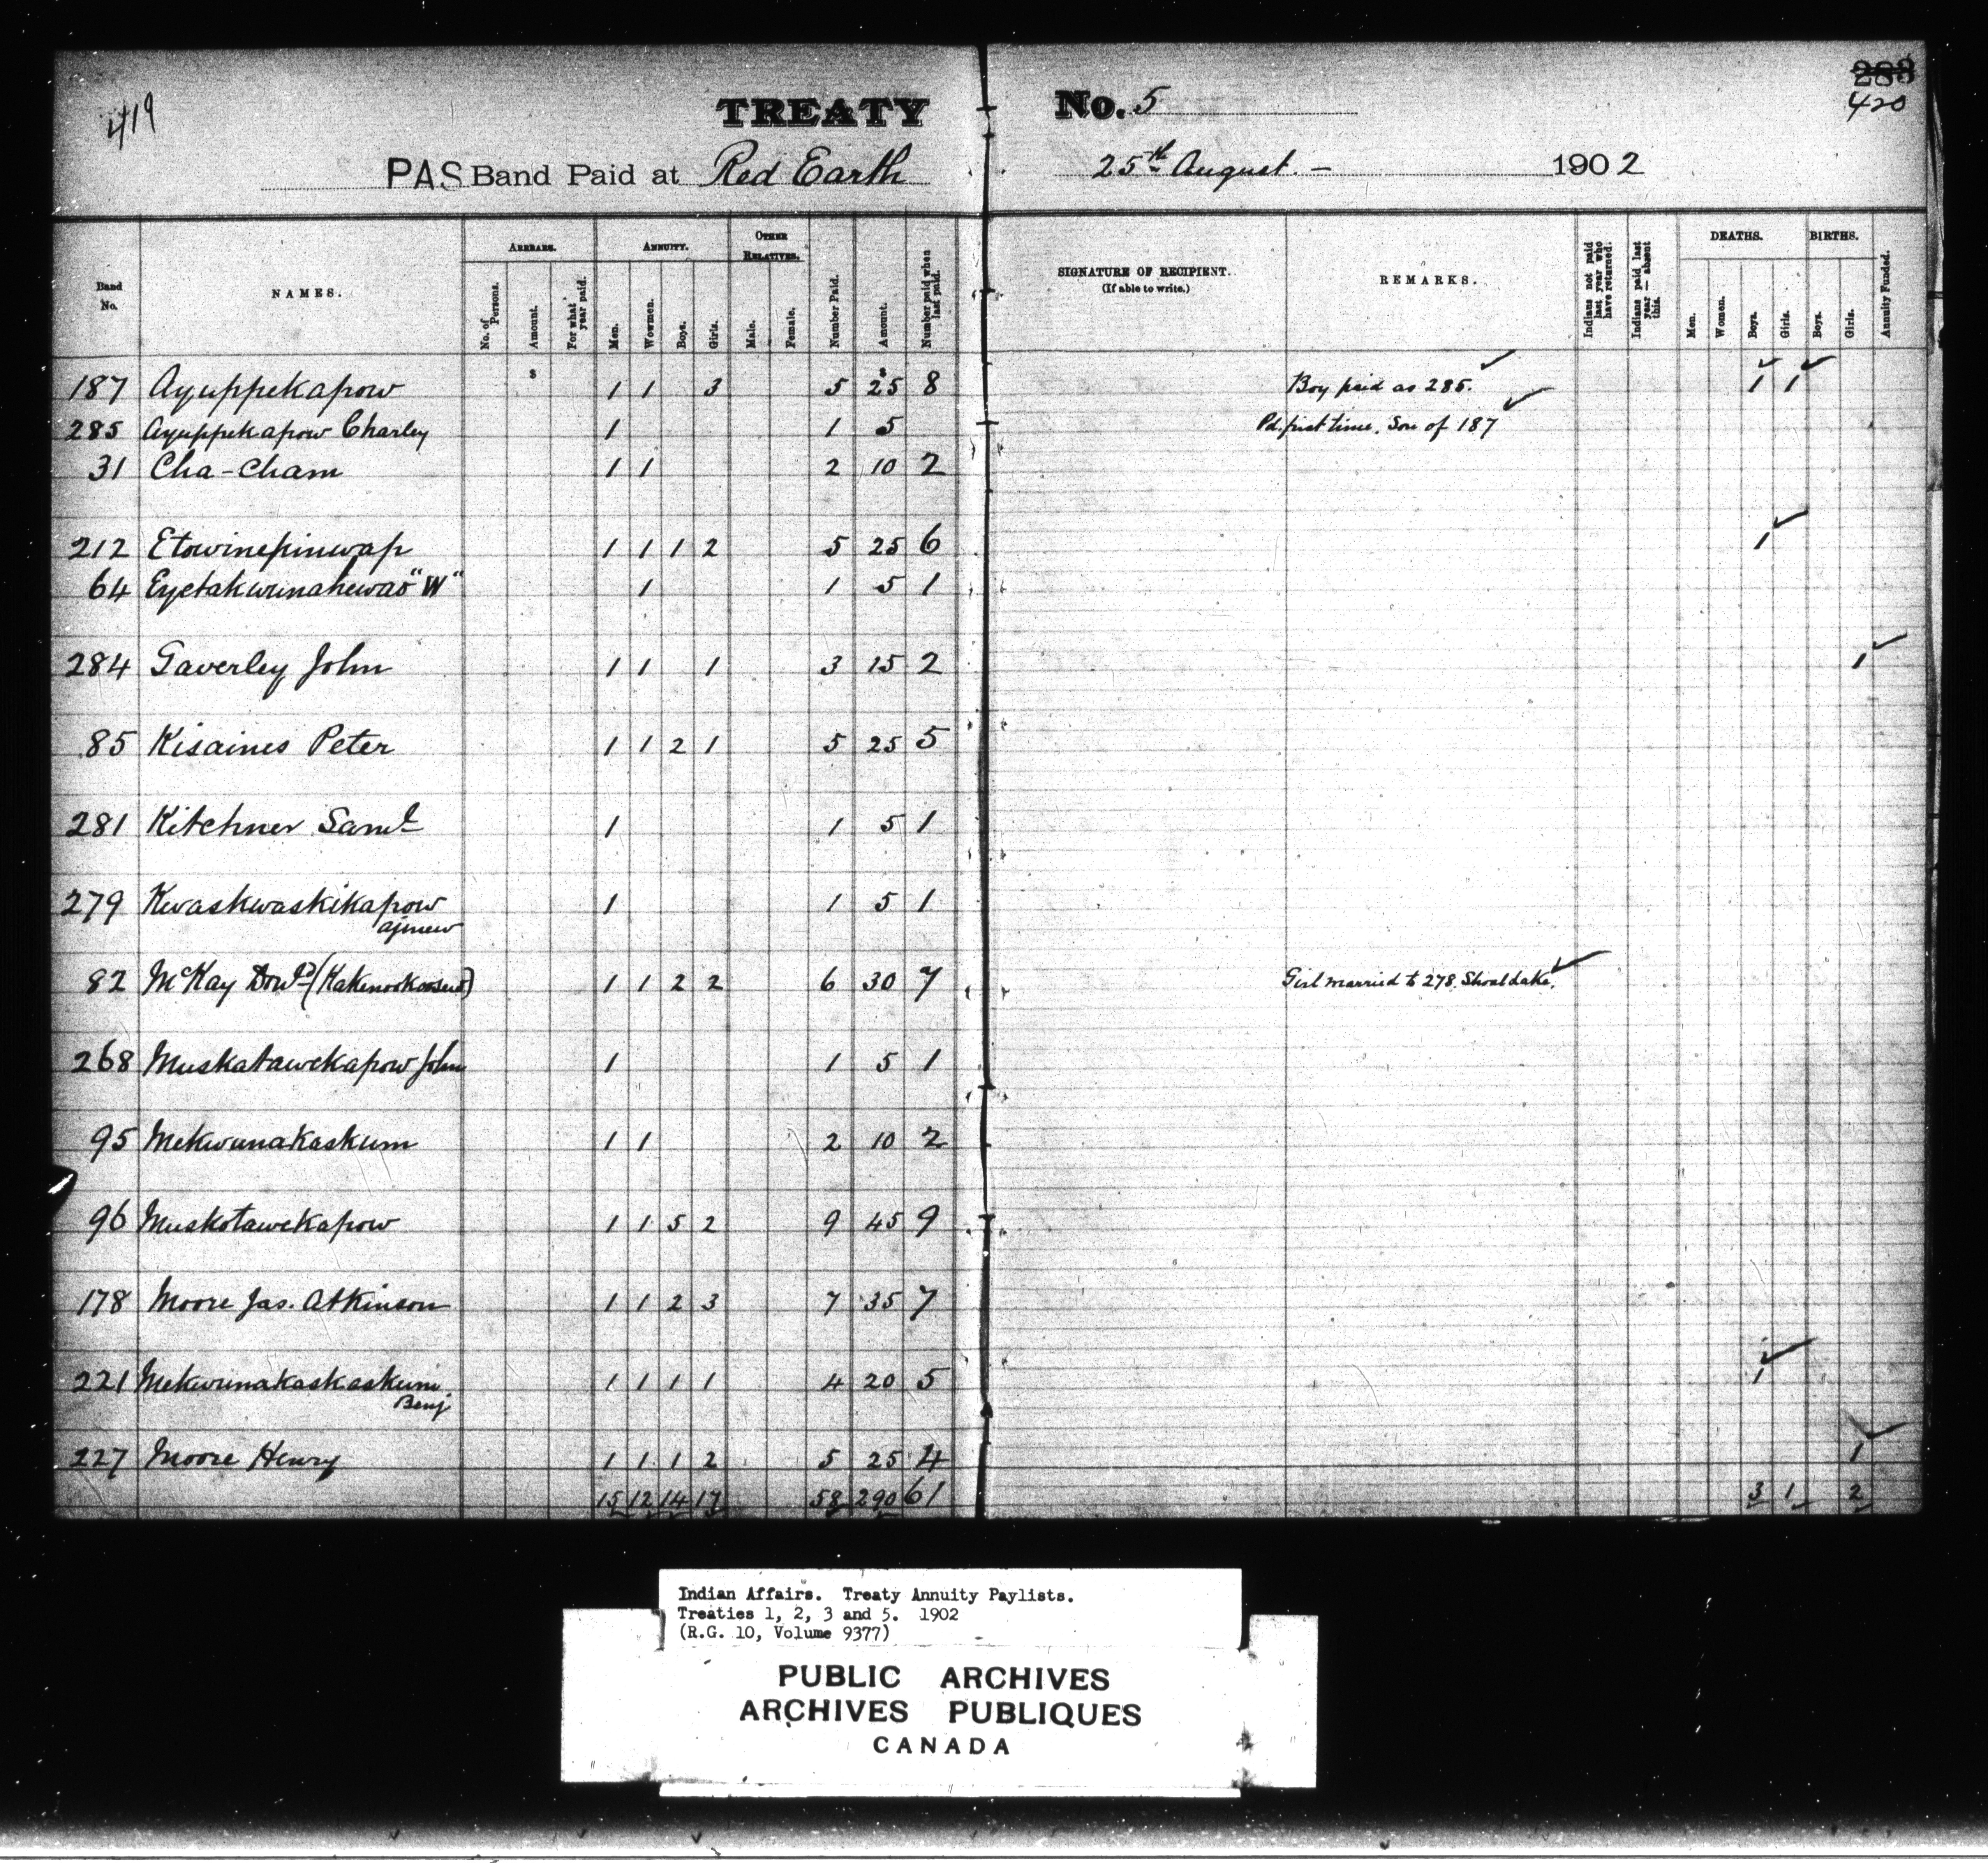 419
TREATY No. 5
283
420
PAS Band Paid at Red Earth 25th August. – 1902
Band No. NAMES. ARREARS. No. of Persons. Amount. For what year paid. ANNUITY. Men. Women. Boys. Girls. OTHER RELATIVES. Male. Female. Number Paid. Amount. Number paid when last paid. SIGNATURE OF RECIPIENT. (If able to write.) REMARKS. Indians not paid last year who have returned. Indians paid last year — absent this. DEATHS. Men. Women. Boys. Girls. BIRTHS. Boys. Girls. Annuity Funded.
187 Ayuppekapow $ 1 1 3 5 $25 8 Boy paid as 285. ✓ 1 ✓ 1 ✓
285 Ayuppekapow Charley 1 1 5 Pd. first time. Son of 187 ✓
31 Cha-Cham 1 1 2 10 2
212 Etowinepinwap 1 1 1 2 5 25 6 1 ✓
64 Eyetakwunahewas "W" 1 1 5 1
284 Gaverley John 1 1 1 3 15 2 1 ✓
85 Kisaines Peter 1 1 2 1 5 25 5
281 Kitchner Saml 1 1 5 1
279 Kwaskwaskikapow 1 1 5 1
82 McKay Dond 1 1 2 2 6 30 7 Girl married to 278 Shoal Lake. ✓
268 Muskatawekapow John 1 1 5 1
95 Mekwunakaskum 1 1 2 10 2
96 Muskotawekapow 1 1 5 2 9 45 9
178 Moore Jas. Atkinson 1 1 2 3 7 35 7
221 Mekwunakaskaskum 1 1 1 1 4 20 5 1 ✓
Benj
227 Moore Henry 1 1 1 2 5 25 4 1 ✓
15 12 14 17 58 290 61 3 1 2
Indian Affairs. Treaty Annuity Paylists.
Treaties 1, 2, 3 and 5. 1902
(R.G. 10, Volume 9377)
PUBLIC ARCHIVES
ARCHIVES PUBLIQUES
CANADA